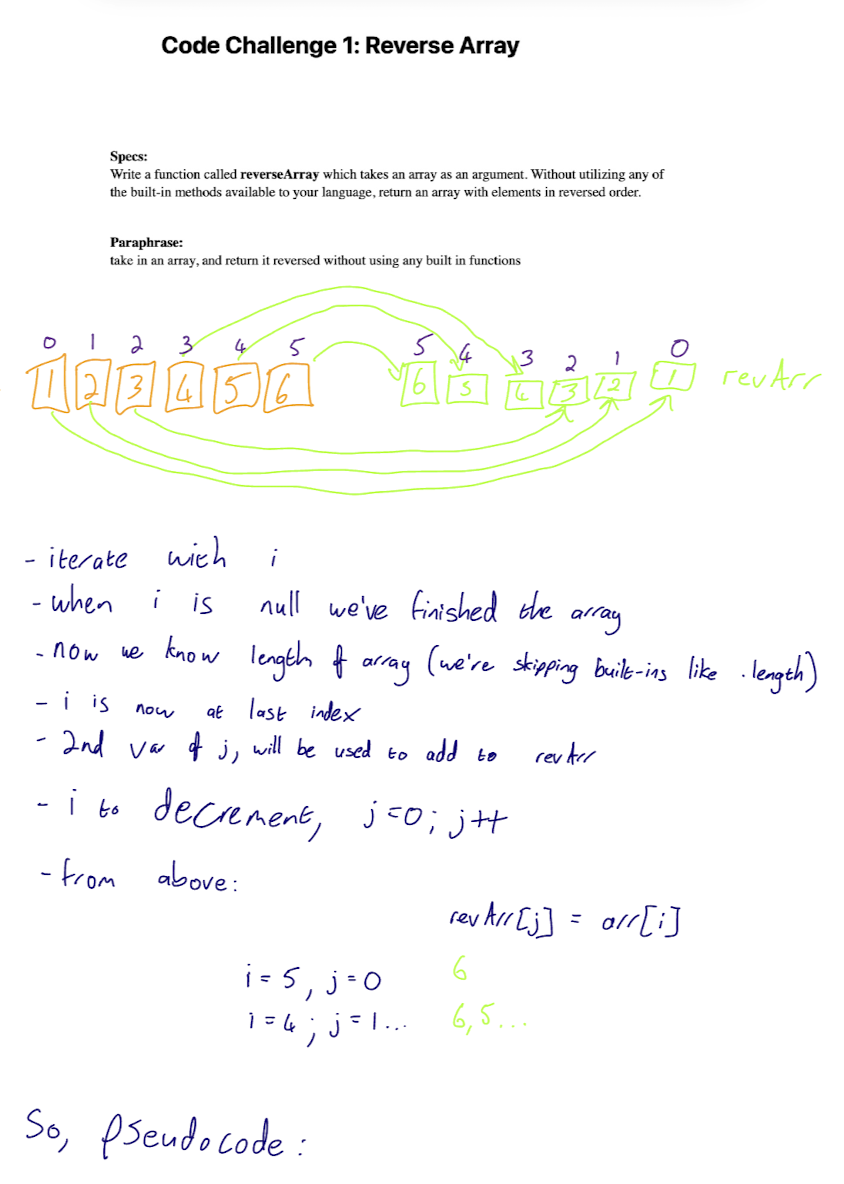 Code Challenge 1: Reverse Array
Specs:
Write a function called reverseArray which takes an array as an argument. Without utilizing any of
the built-in methods available to your language, return an array with elements in reversed order.
Paraphrase:
take in an array, and return it reversed without using any built in functions
0 1 2 3 4 5 5 4 3 2 1 0
1 2 3 4 5 6 6 5 4 3 2 1 revArr
- iterate with i
- when i is null we've finished the array
- now we know length of array (we're skipping built-ins like .length)
- i is now at last index
- 2nd var of j, will be used to add to revArr
- i to decrement, j=0; j++
- from above:
revArr[j] = arr[i]
i=5, j=0 6
i=4; j=1... 6,5...
So, pseudocode: